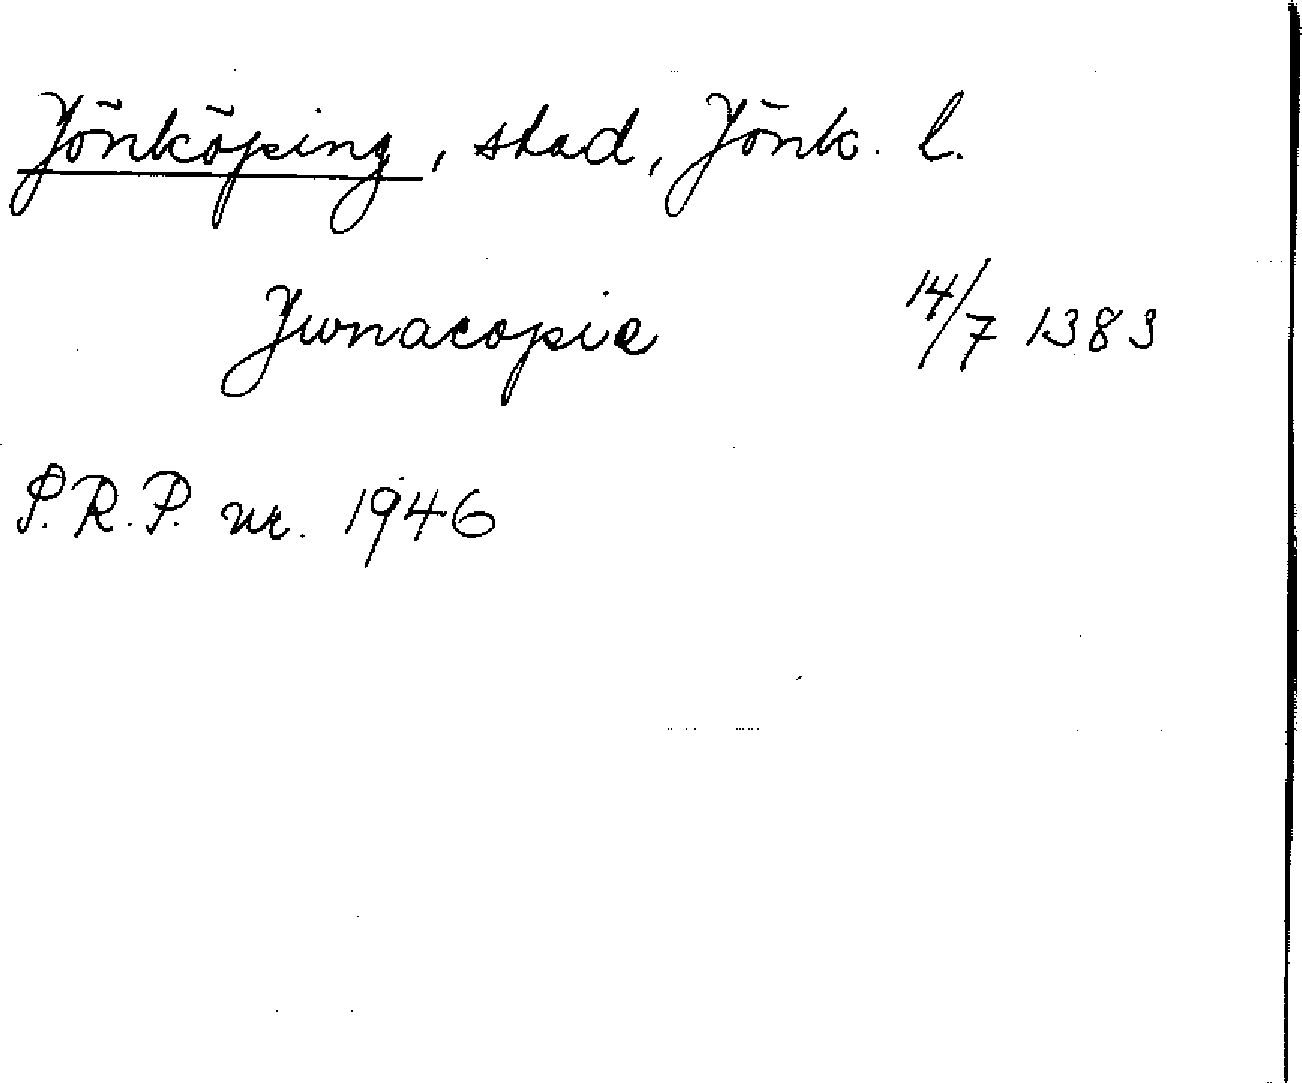 Jönköping, stad, Jönk. l.
Junacopie 14/7 1383
P.R.P. nr. 1946